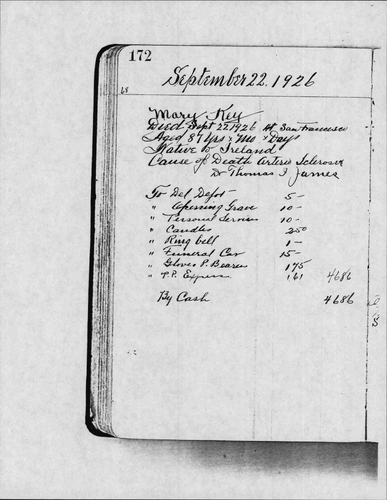 172
September 22, 1926
68
Mary Key
Died Sept 22 1926 at San Francisco
Aged 87 Yrs " Mo " Days
Native of Ireland
Cause of Death Arterio Sclerosis
Dr Thomas J James
To Del Depot 5 -
" Opening Grave 10 -
" Personal Services 10 -
" Candles 2 50
" Ring bell 1 -
" Funeral Car 15 -
" Gloves P. Bearers 1 75
" P.P. Express 1 61 46 86
By Cash 46 86